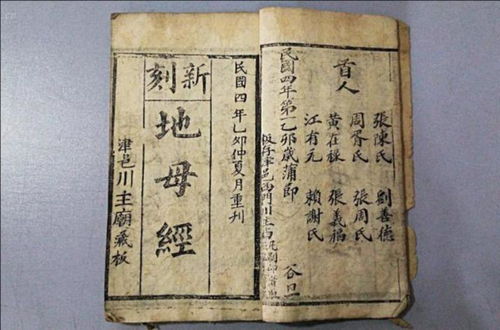 首人
張陳氏 劉善德
周胥氏 張周氏
黃在祿 張義福
江有元 賴謝氏
民國四年第一乙卯歲蒲即
板存 邑西門川主 谷
民國四年乙卯仲夏月重刊
新刻
地母經
津邑川主廟藏板